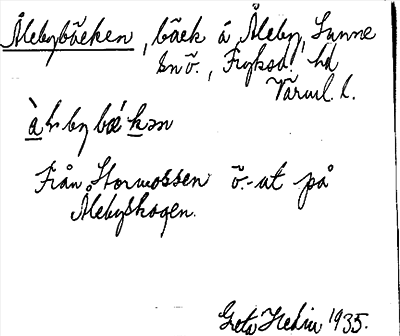 Ålebybäcken, bäck å Åleby, Sunne
sn ö., Fryksd. hd
Värml. l.
à lbybǽkən
Från Stormossen ö.-ut på
Ålebyskogen.
Greta Hedin 1935.